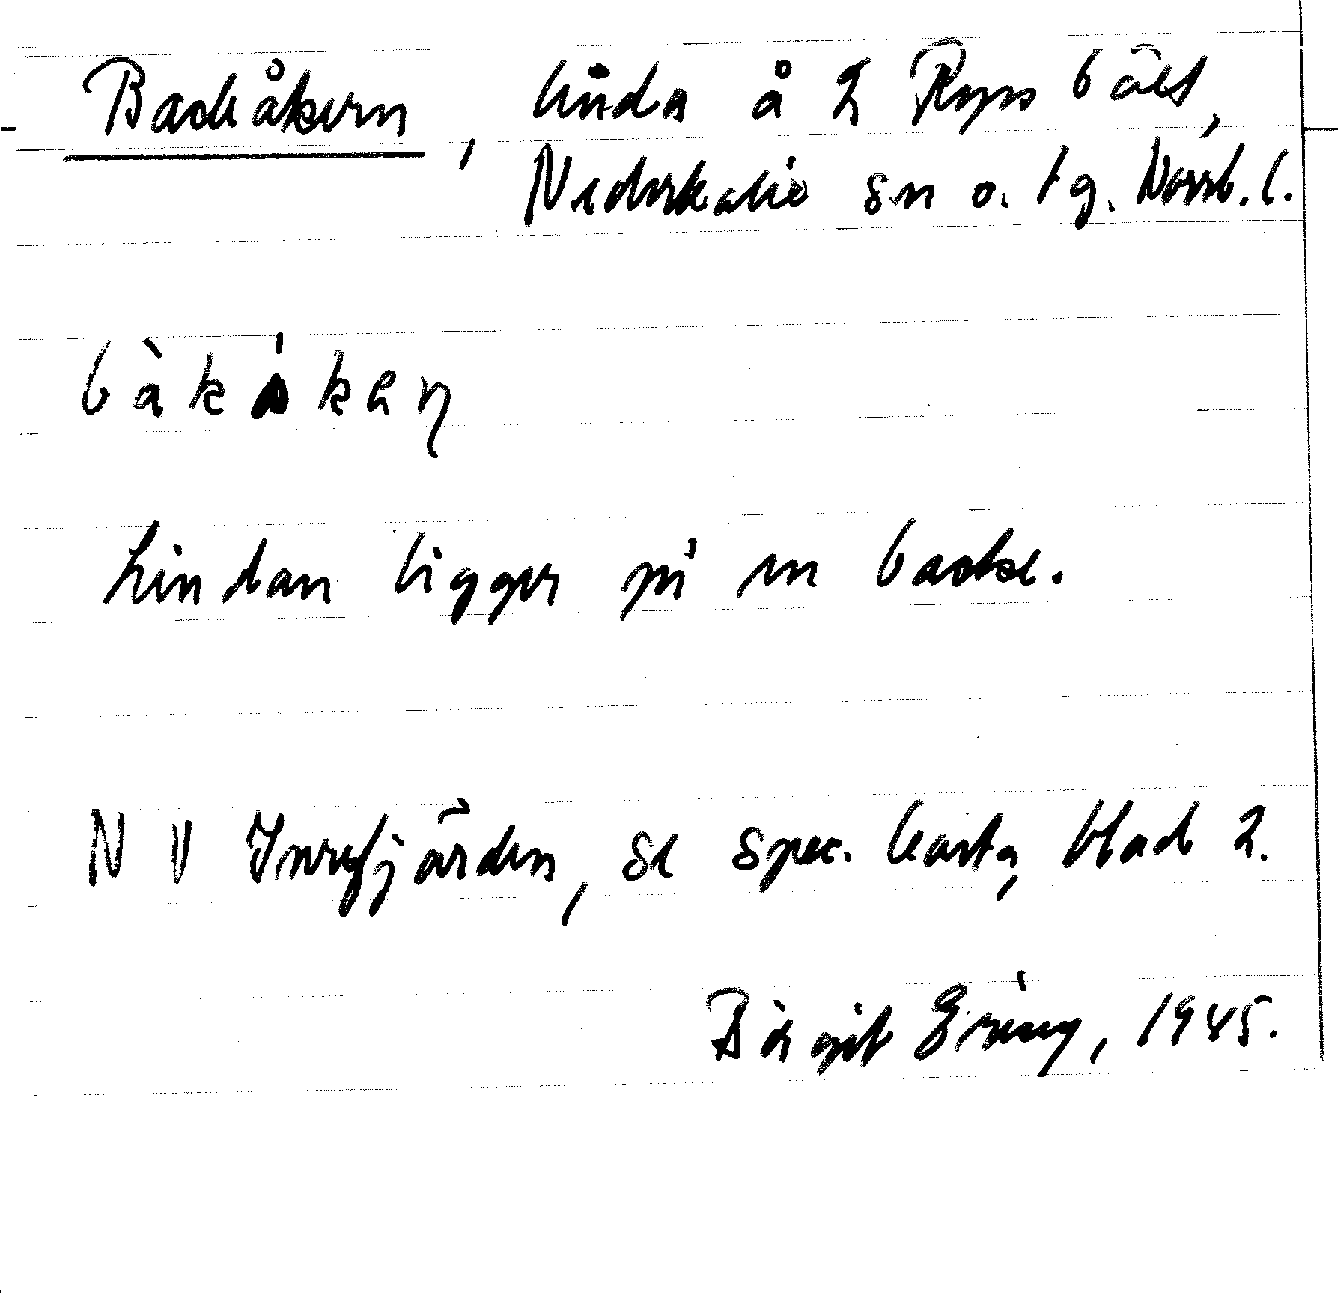 Backåkern, linda å 2 Ryssbält,
Nederkalix sn o. tg. Norrb. l.
bàkåkaɳ
Lindan ligger på en backe.
N V Inrefjärden, se spec. karta, blad 2.
Birgit Ering, 1945.